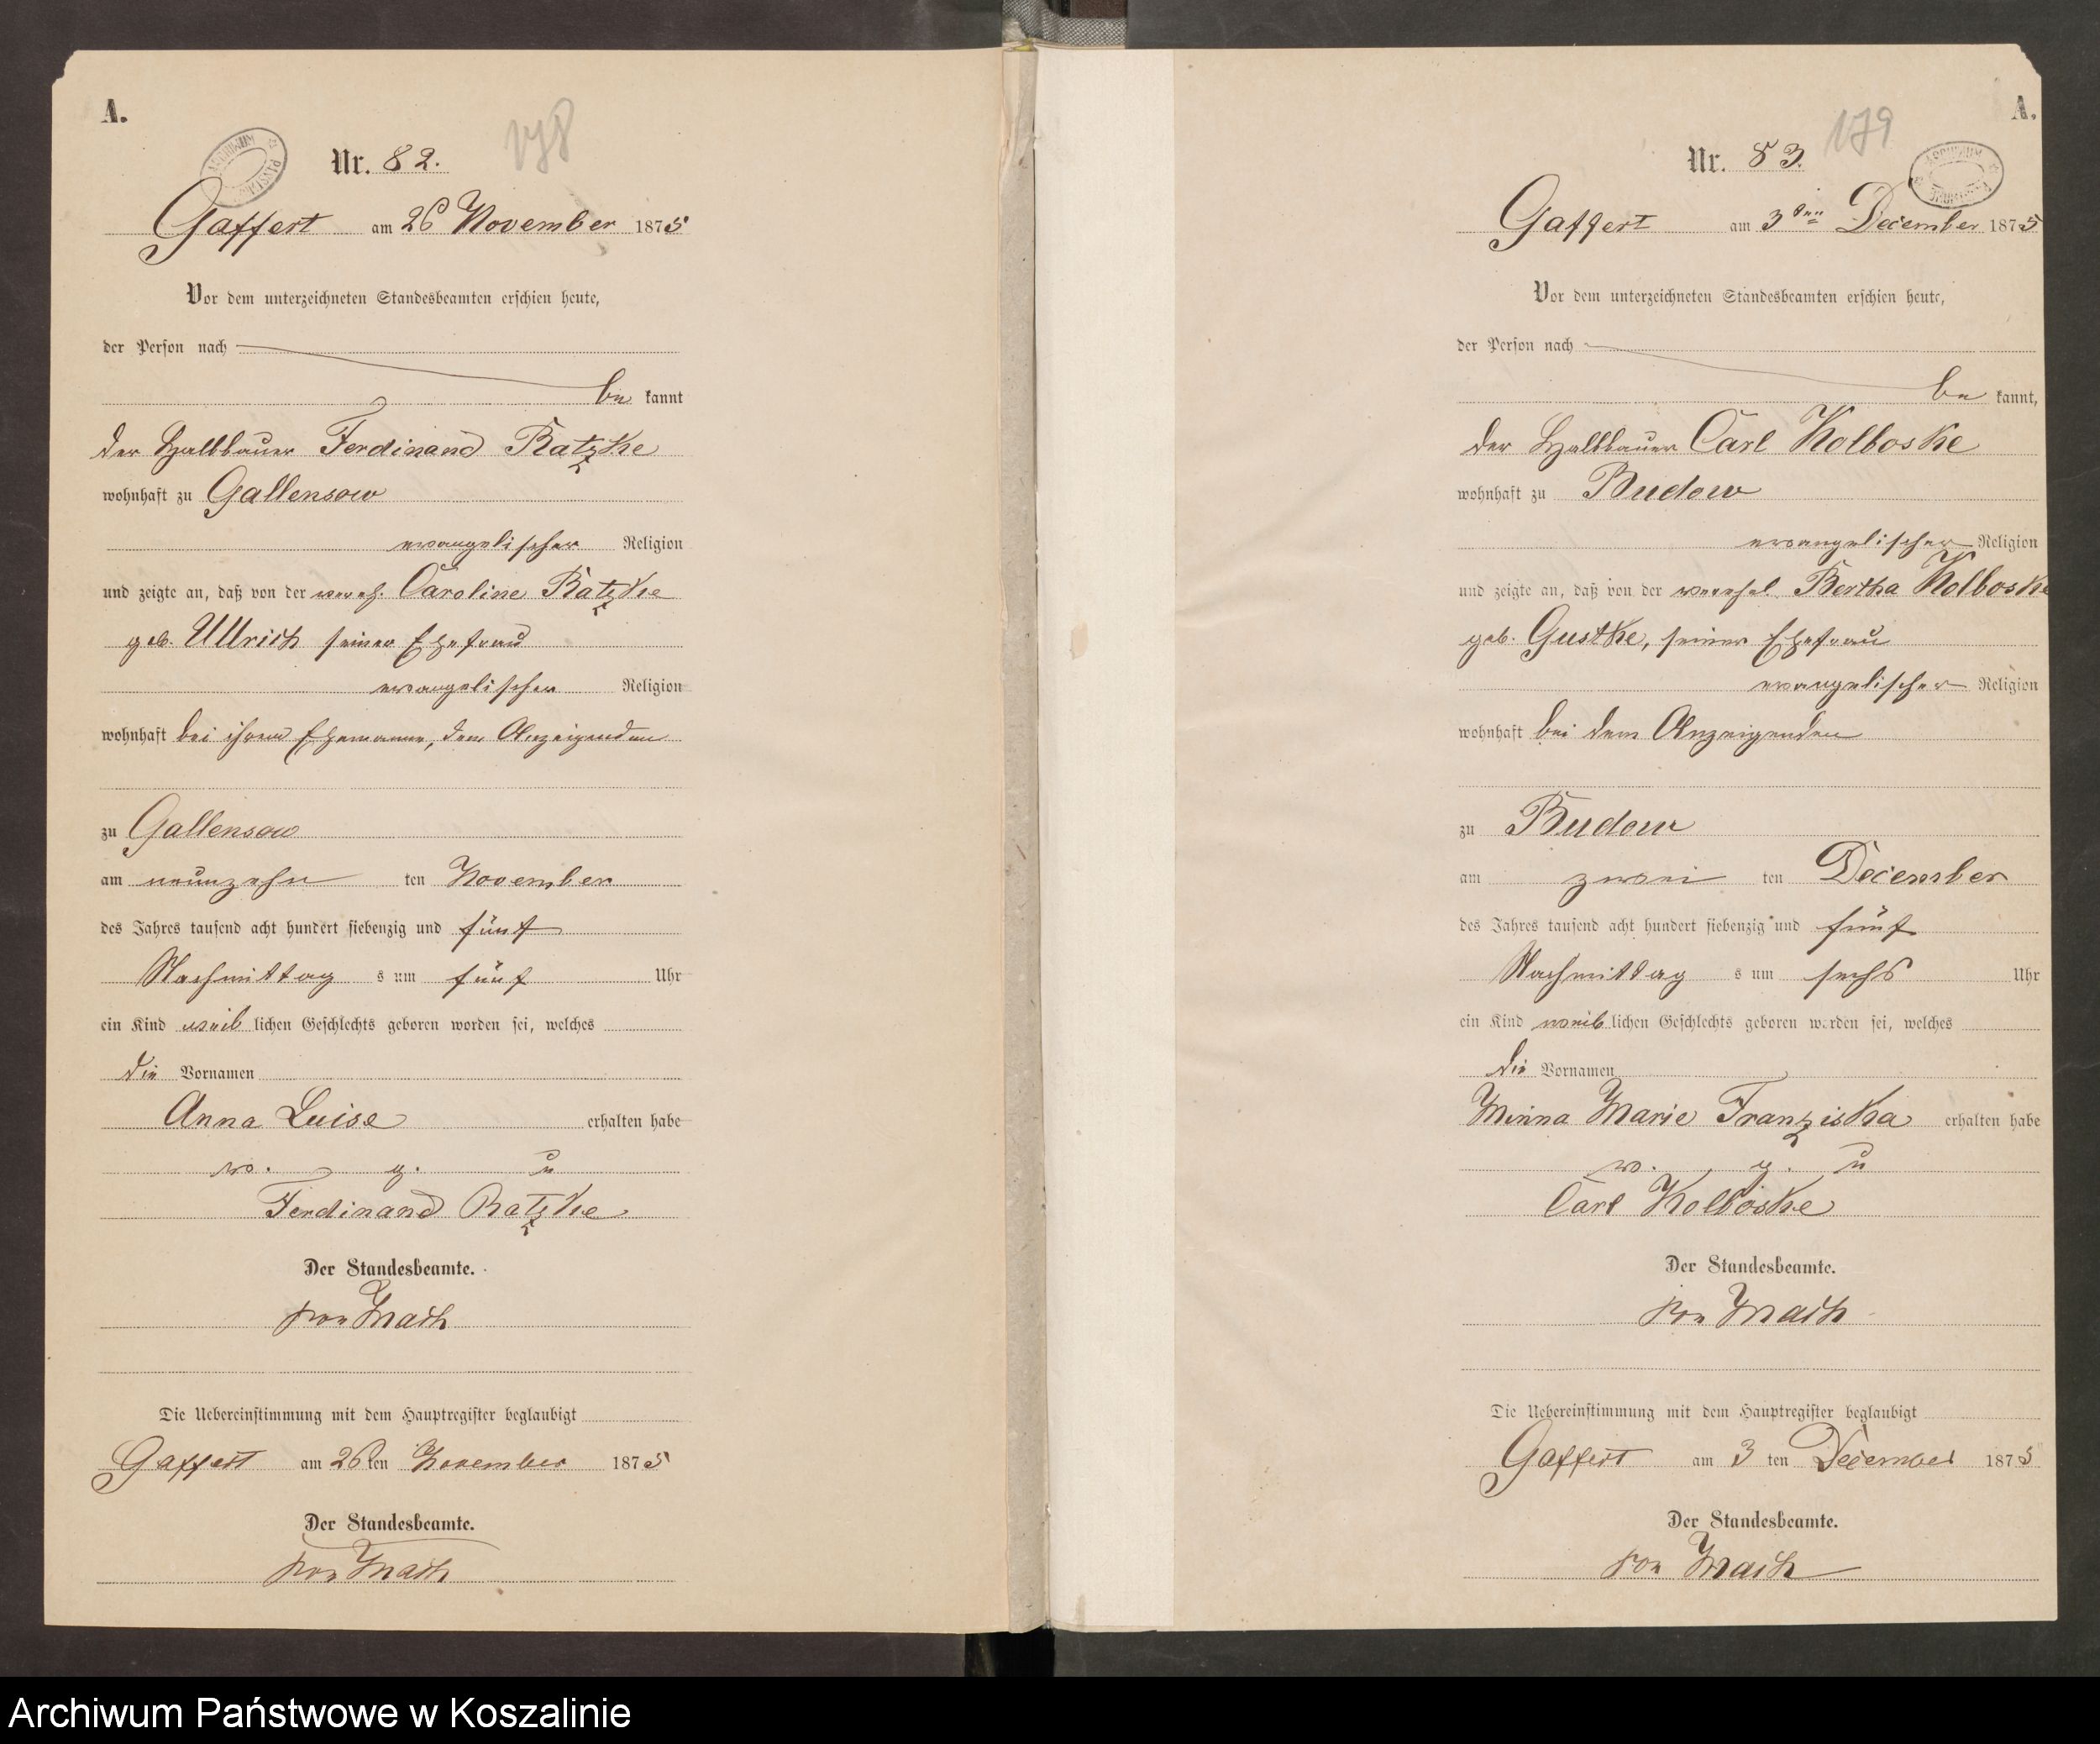 A.
178
Nr. 82.
Gaffert am 26 November 1875
Vor dem unterzeichneten Standesbeamten erschien heute,
der Person nach
be kannt
der Halbbauer Ferdinand Ratzke
wohnhaft zu Gallensow
evangelischer Religion
und zeigte an, daß von der vereh. Caroline Ratzke
geb. Ullrich seiner Ehefrau
evangelischer Religion
wohnhaft bei ihrem Ehemanne, dem Anzeigenden
zu Gallensow
am neunzehn ten November
des Jahres tausend acht hundert siebenzig und fünf
Nachmittag s um fünf Uhr
ein Kind weib lichen Geschlechts geboren worden sei, welches
die Vornamen
Anna Luise erhalten habe
v. g. u
Ferdinand Ratzke
Der Standesbeamte.
von Mach
Die Uebereinstimmung mit dem Hauptregister beglaubigt
Gaffert am 26 ten November 1875
Der Standesbeamte.
von Mach
A.
179
Nr. 83.
Gaffert am 3ten December 1875
Vor dem unterzeichneten Standesbeamten erschien heute,
der Person nach
be kannt,
der Halbbauer Carl Kolboske
wohnhaft zu Budow
evangelischer Religion
und zeigte an, daß von der verehel. Bertha Kolboske
geb. Gustke, seiner Ehefrau
evangelischer Religion
wohnhaft bei dem Anzeigenden
zu Budow
am zwei ten December
des Jahres tausend acht hundert siebenzig und fünf
Nachmittag s um sechs Uhr
ein Kind weib lichen Geschlechts geboren worden sei, welches
die Vornamen
Minna Marie Franziska erhalten habe
v. g. u
Carl Kolboske
Der Standesbeamte.
von Mach
Die Uebereinstimmung mit dem Hauptregister beglaubigt
Gaffert am 3 ten December 1875
Der Standesbeamte.
von Mach
Archiwum Państwowe w Koszalinie